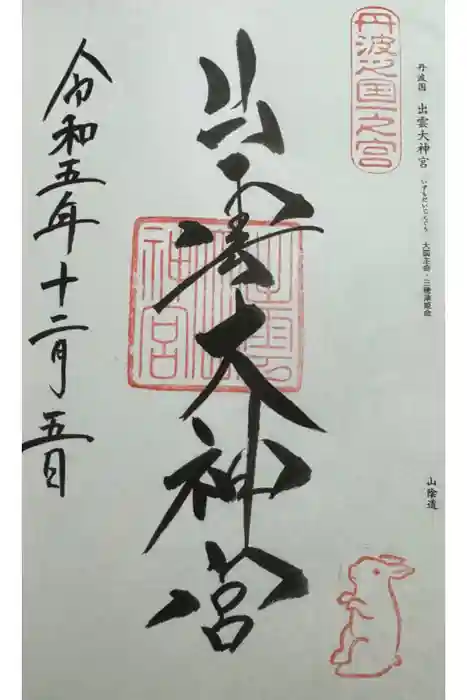 丹波之国一之宮
丹波国 出雲大神宮 いずもだいじんぐう 大国主命・三穂津姫命
山陰道
出雲大神宮
出雲大神宮
令和五年十二月五日